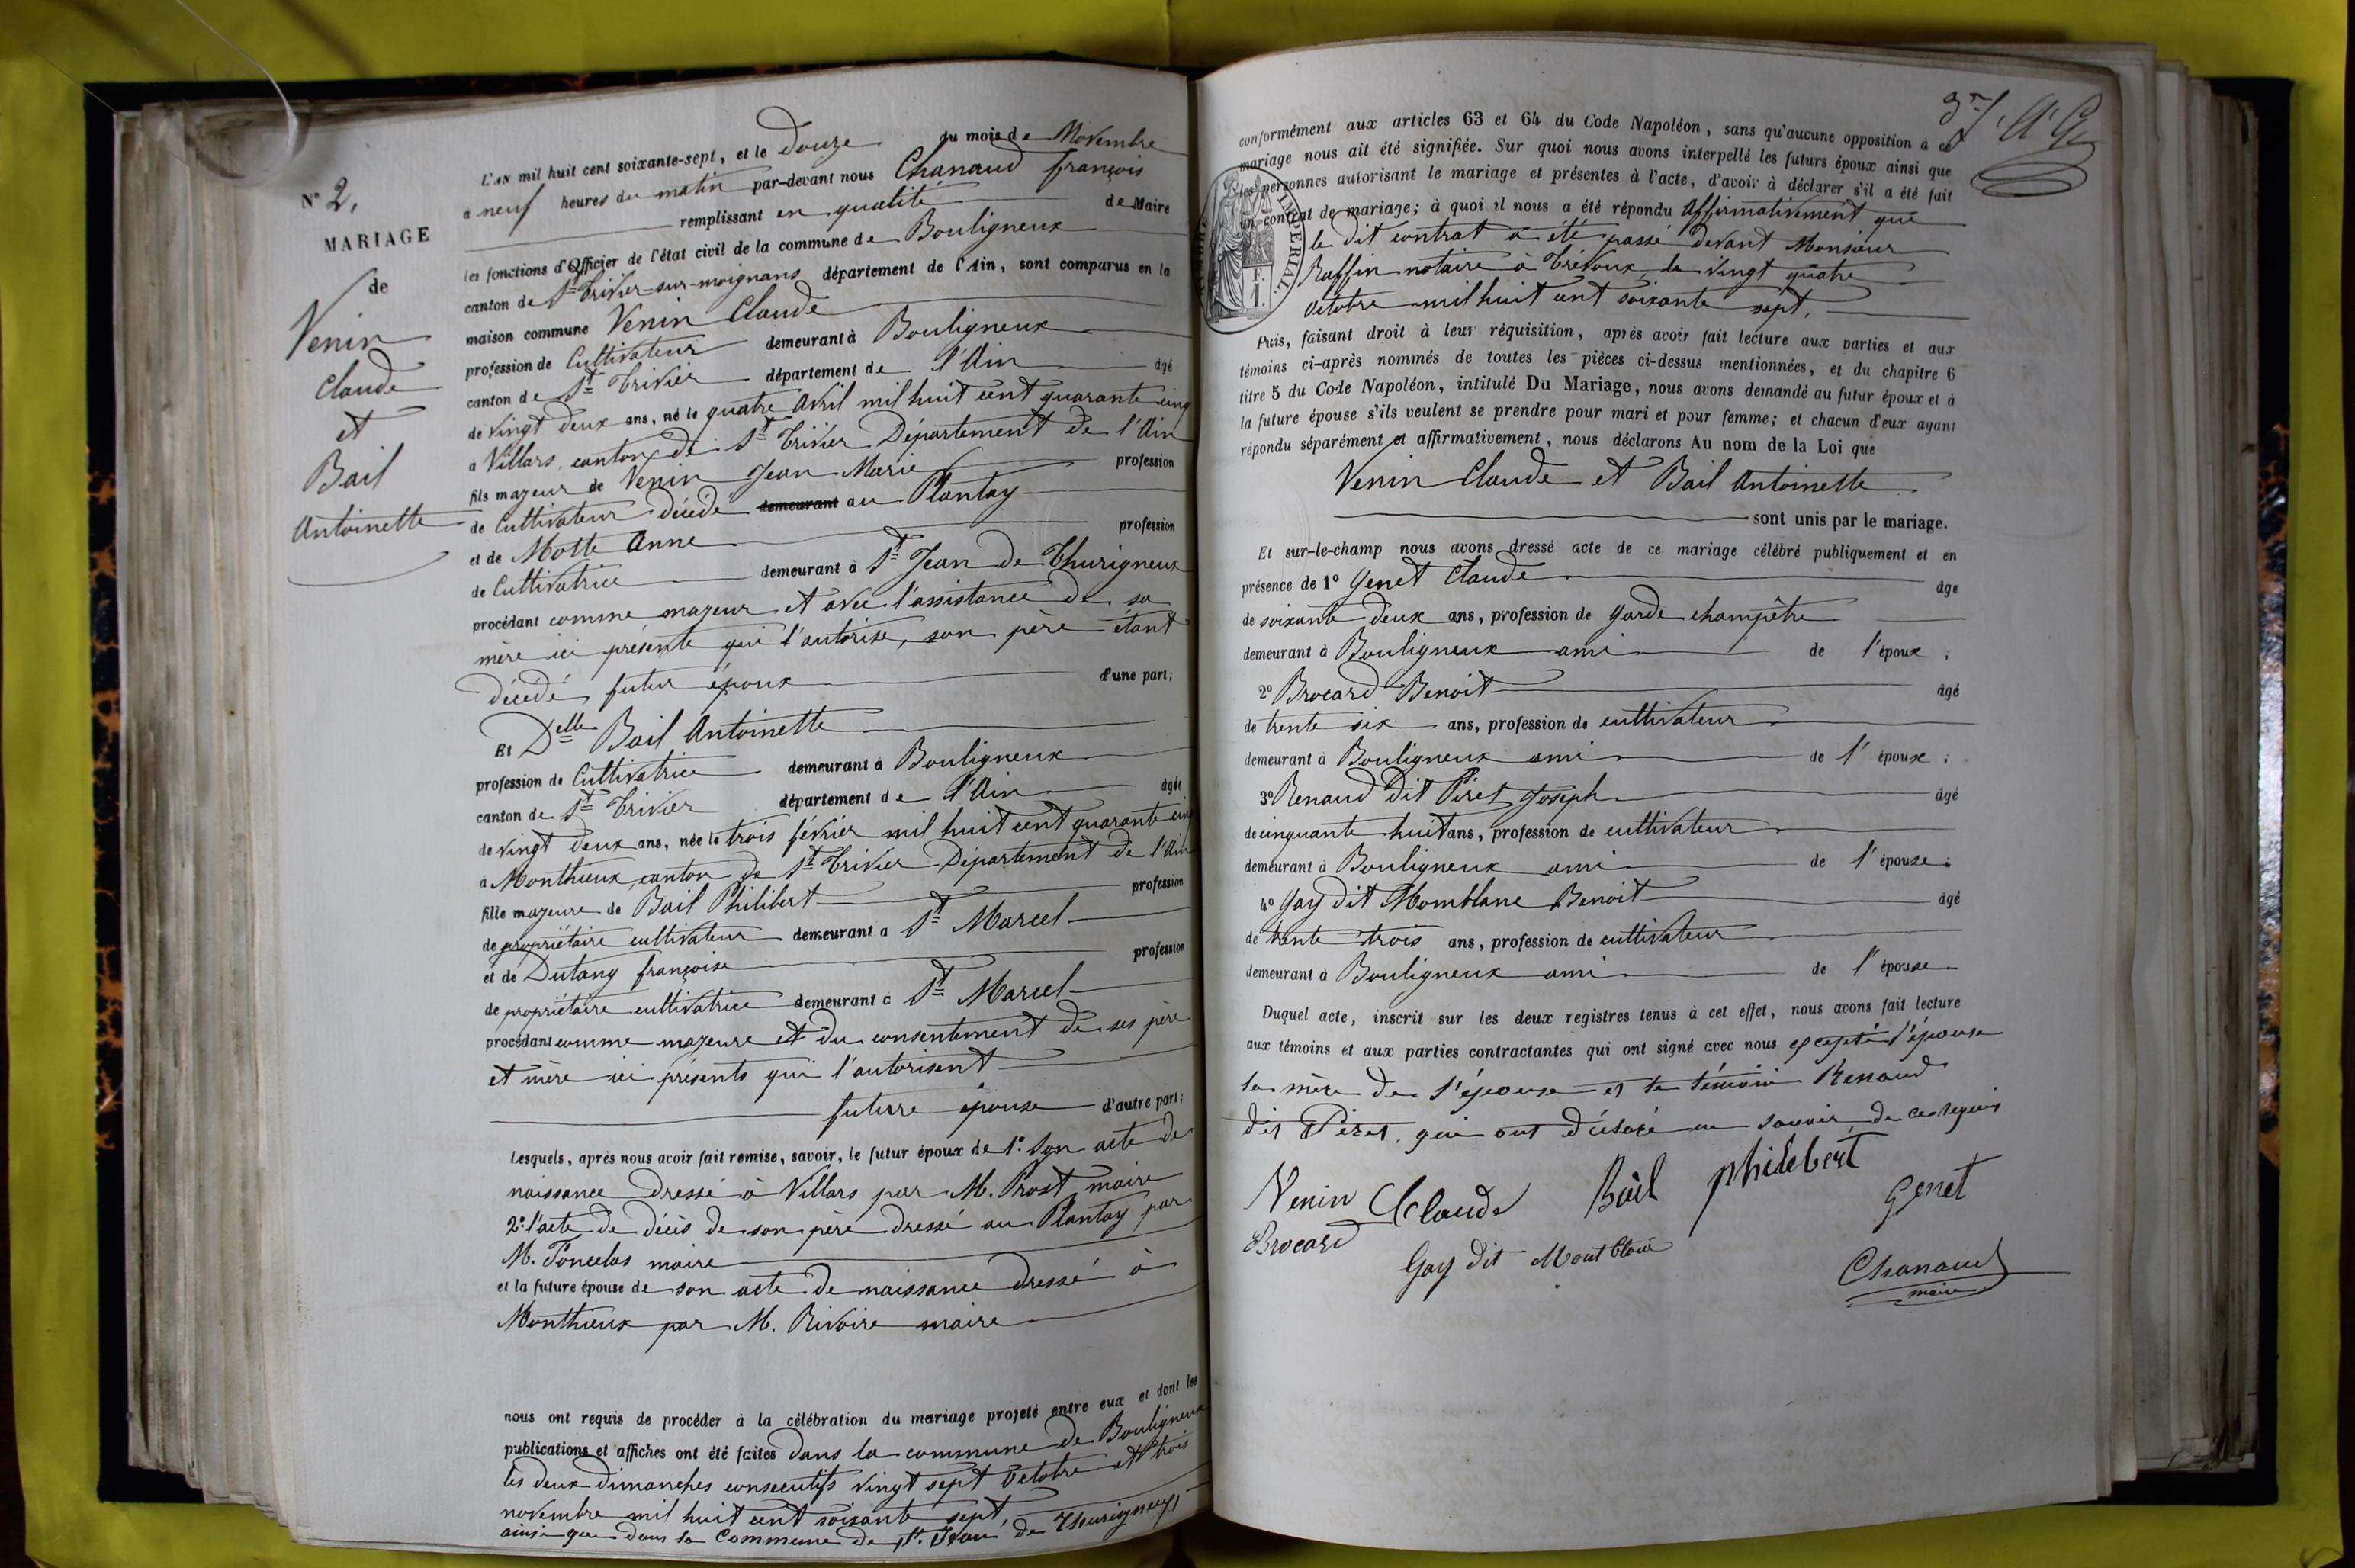 N° 2,
MARIAGE
de
Venin
Claude
et
Bail
Antoinette
L'AN mil huit cent soixante-sept, et le Douze du mois de Novembre
a neuf heures du matin par-devant nous Chanaud françois
remplissant en qualité de Maire
les fonctions d'Officier de l'état civil de la commune de Bouligneux
canton de St Trivier-sur-moignans département de l'Ain, sont comparus en la
maison commune Venin Claude
profession de Cultivateur demeurant à Bouligneux
canton de St Trivier département de l'Ain âgé
de vingt deux ans, né le quatre Avril mil huit cent quarante cinq
à Villars, canton de St Trivier Département de l'Ain
fils majeur de Venin Jean Marie profession
de Cultivateur décédé demeurant au Plantay
et de Motte Anne profession
de Cultivatrice demeurant à St Jean de Thurigneux
procédant comme majeur et avec l'assistance de sa
mère ici présente qui l'autorise, son père étant
décédé, futur époux d'une part;
Et Delle Bail Antoinette
profession de Cultivatrice demeurant à Bouligneux
canton de St Trivier département de l'Ain âgée
de vingt deux ans, née le trois février mil huit cent quarante cinq
à Monthieux, canton de St Trivier Département de l'Ain
fille majeure de Bail Philibert profession
de propriétaire cultivateur demeurant à St Marcel
et de Dutang françoise profession
de propriétaire cultivatrice demeurant à St Marcel
procédant comme majeure et du consentement de ses père
et mère ici présents qui l'autorisent
future épouse d'autre part;
Lesquels, après nous avoir fait remise, savoir, le futur époux de 1° son acte de
naissance dressé à Villars par M. Prost maire
2° l'acte de décès de son père dressé au Plantay par
M. Poncelas maire
et la future épouse de son acte de naissance dressé à
Monthieux par M. Rivoire maire
nous ont requis de procéder à la célébration du mariage projeté entre eux et dont les
publications et affiches ont été faites dans la commune de Bouligneux
les deux dimanches consécutifs vingt sept Octobre et trois
novembre mil huit cent soixante sept,
ainsi que dans la Commune de St Jean de Thurigneux
37
conformément aux articles 63 et 64 du Code Napoléon, sans qu'aucune opposition à ce
mariage nous ait été signifiée. Sur quoi nous avons interpellé les futurs époux ainsi que
les personnes autorisant le mariage et présentes à l'acte, d'avoir à déclarer s'il a été fait
un contrat de mariage; à quoi il nous a été répondu Affirmativement que
le dit contrat a été passé devant Monsieur
Raffin notaire à Trévoux, le vingt quatre
Octobre mil huit cent soixante sept,
Puis, faisant droit à leur réquisition, après avoir fait lecture aux parties et aux
témoins ci-après nommés de toutes les pièces ci-dessus mentionnées, et du chapitre 6
titre 5 du Code Napoléon, intitulé Du Mariage, nous avons demandé au futur époux et à
la future épouse s'ils veulent se prendre pour mari et pour femme; et chacun d'eux ayant
répondu séparément et affirmativement, nous déclarons Au nom de la Loi que
Venin Claude et Bail Antoinette
sont unis par le mariage.
Et sur-le-champ nous avons dressé acte de ce mariage célébré publiquement et en
présence de 1° Genet Claude âge
de soixante deux ans, profession de garde champêtre
demeurant à Bouligneux ami de l'époux;
2° Brocard Benoit âgé
de trente six ans, profession de cultivateur
demeurant à Bouligneux ami de l'époux;
3° Renaud dit Piret Joseph âgé
de cinquante huit ans, profession de cultivateur
demeurant à Bouligneux ami de l'épouse;
4° Gay dit Momblanc Benoit âgé
de trente trois ans, profession de cultivateur
demeurant à Bouligneux ami de l'épouse
Duquel acte, inscrit sur les deux registres tenus à cet effet, nous avons fait lecture
aux témoins et aux parties contractantes qui ont signé avec nous excepté l'épouse
la mère de l'épouse et le témoin Renaud
dit Piret, qui ont déclaré ne savoir, de ce requis
Venin Claude Bail philibert Genet
Brocard Gay dit Chanaud
maire